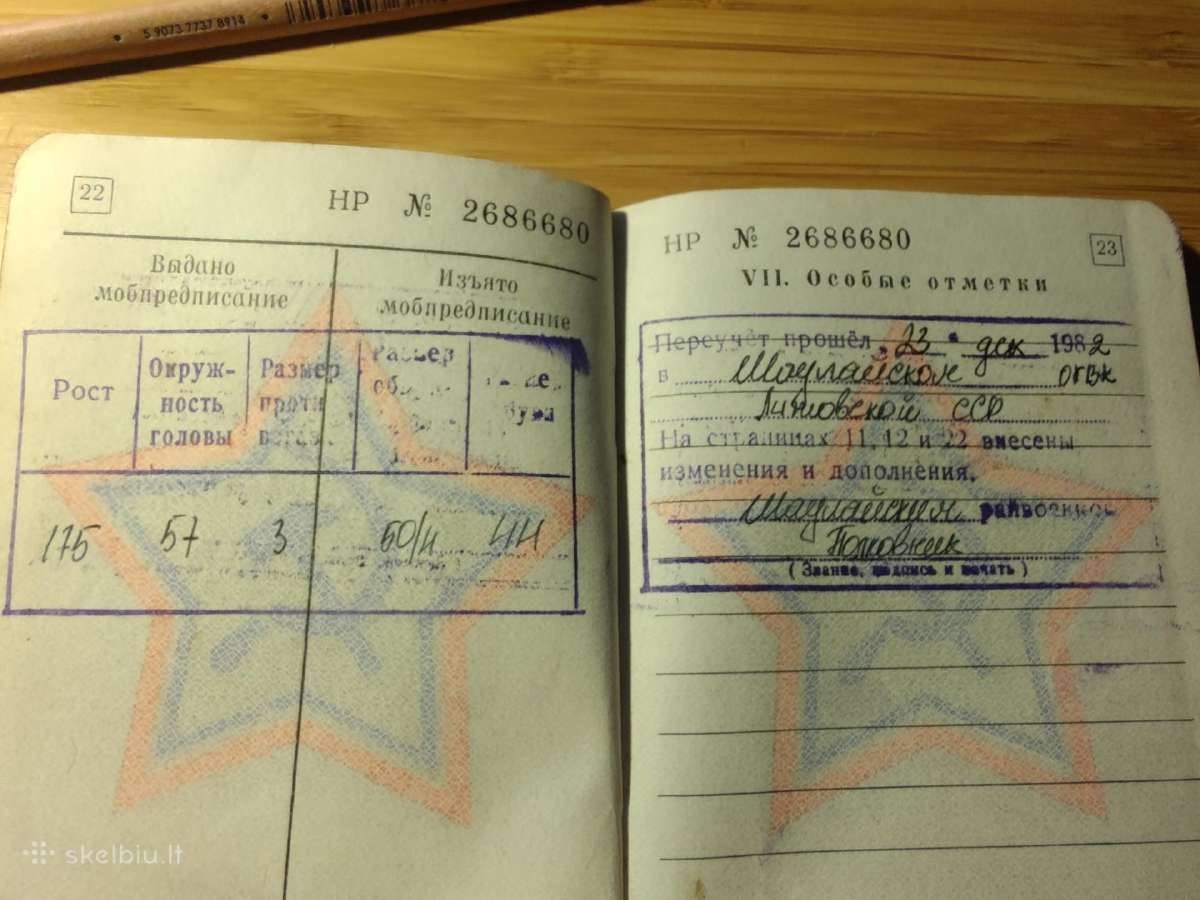 5 9073 7737 8914
22
НР № 2686680
Выдано мобпредписание
Изъято мобпредписание
Рост
Окруж-
ность
головы
Размер
проти
Размер
175 57 3 50/4 44
НР № 2686680
23
VII. Особые отметки
Переучёт прошёл „23 " дек 1982
в Шяуляйском ОГВК
Литовской ССР
На страницах 11, 12 и 22 внесены
изменения и дополнения.
Шяуляйским райвоенком
Полковник
(Звание, подпись и печать)
skelbiu.lt